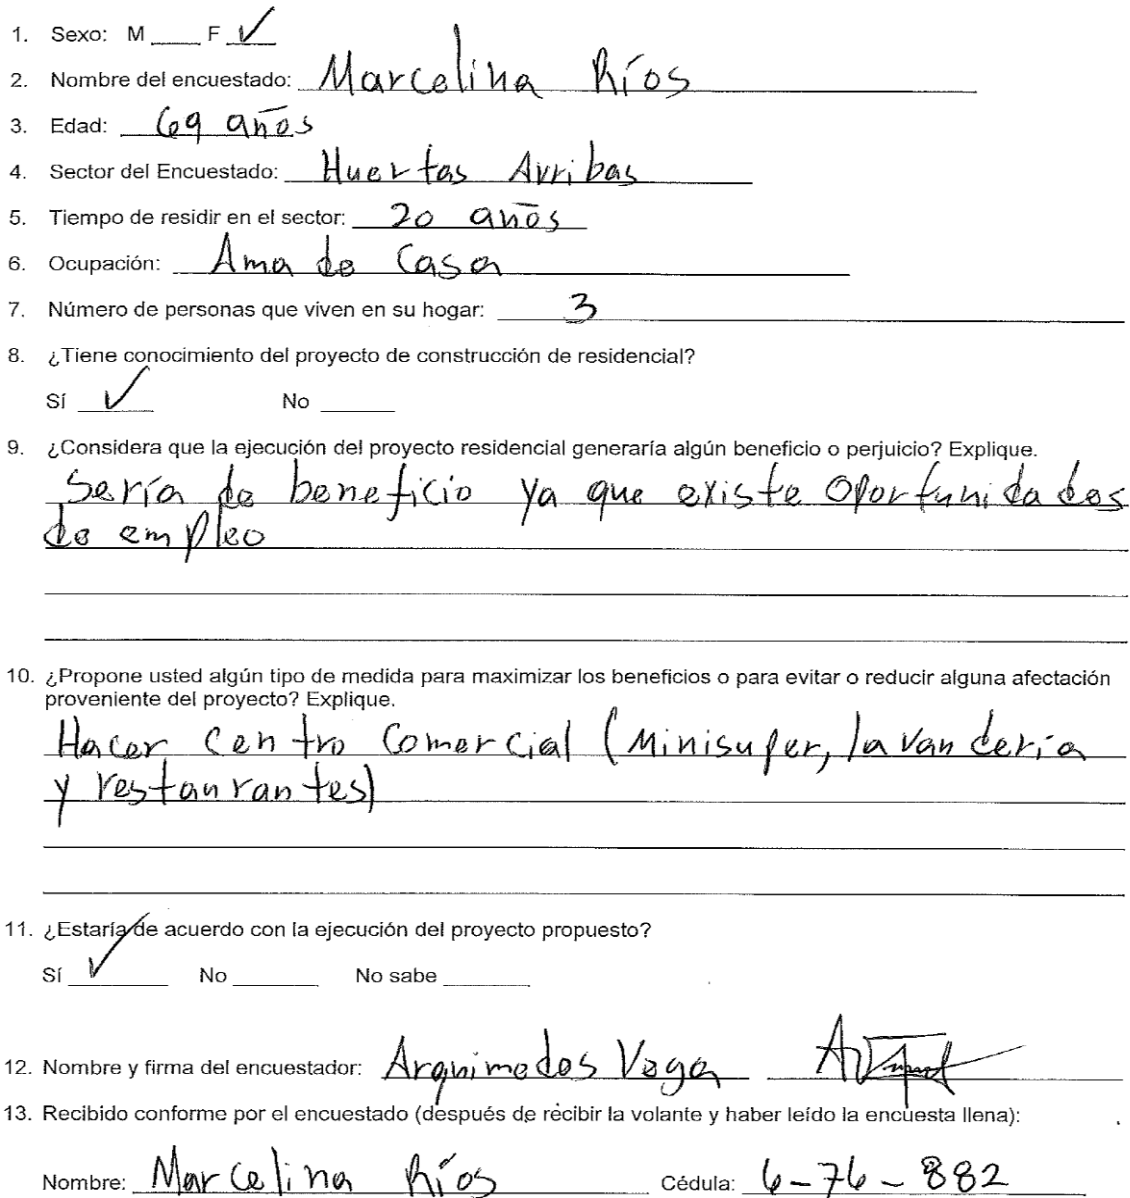 1. Sexo: M ____ F ✓
2. Nombre del encuestado: Marcelina Ríos
3. Edad: 69 años
4. Sector del Encuestado: Huertas Arribas
5. Tiempo de residir en el sector: 20 años
6. Ocupación: Ama de Casa
7. Número de personas que viven en su hogar: 3
8. ¿Tiene conocimiento del proyecto de construcción de residencial?
Sí ✓ No ______
9. ¿Considera que la ejecución del proyecto residencial generaría algún beneficio o perjuicio? Explique.
Sería de beneficio ya que existe oportunidades
de empleo
10. ¿Propone usted algún tipo de medida para maximizar los beneficios o para evitar o reducir alguna afectación
proveniente del proyecto? Explique.
Hacer centro comercial (Minisuper, lavandería
y restaurantes)
11. ¿Estaría de acuerdo con la ejecución del proyecto propuesto?
Sí ✓ No ______ No sabe ______
12. Nombre y firma del encuestador: Arquimedes Vega
13. Recibido conforme por el encuestado (después de recibir la volante y haber leído la encuesta llena):
Nombre: Marcelina Ríos Cédula: 6-76-882